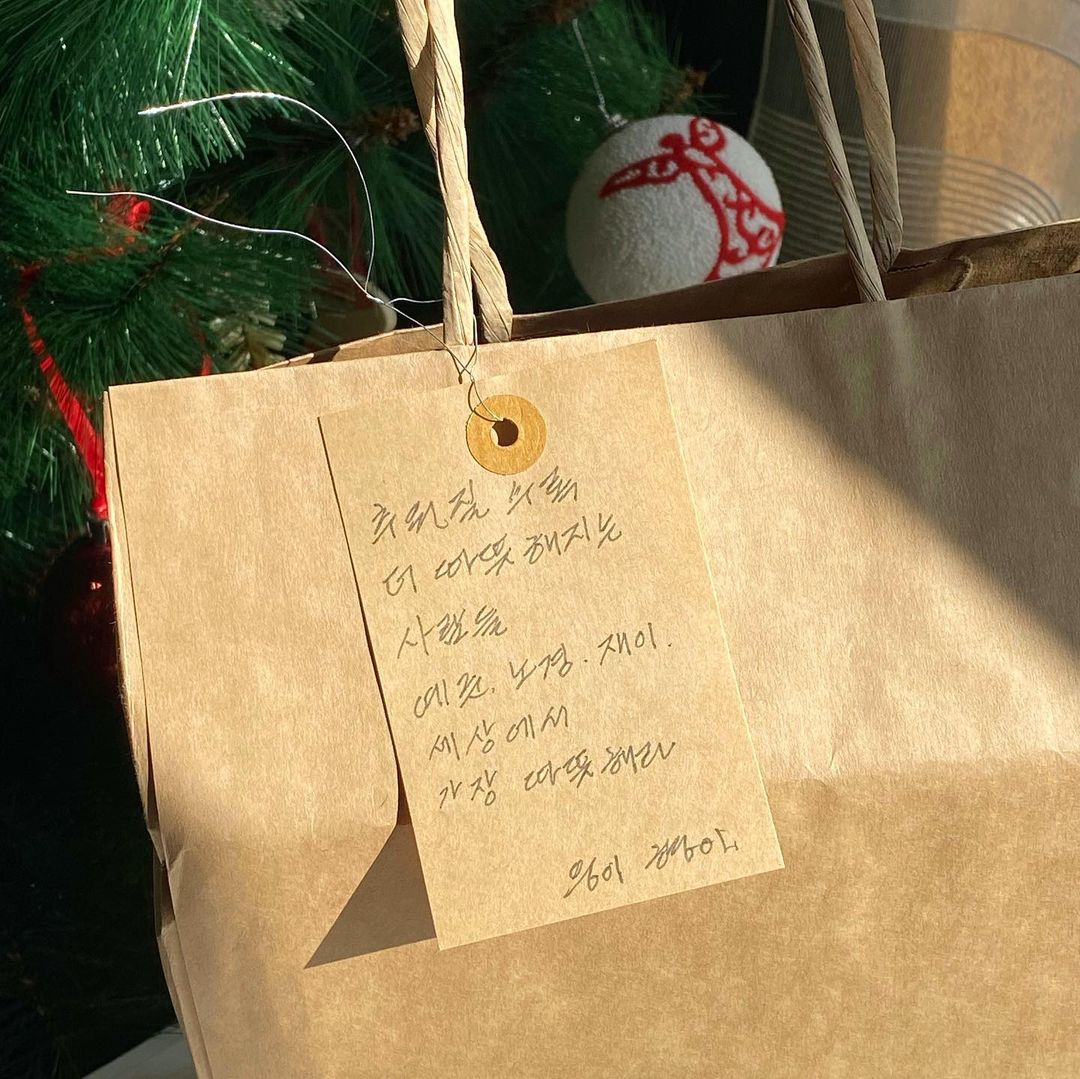 추워질수록
더 따뜻해지는
사람들
예준. 노경. 재이.
세상에서
가장 따뜻해라